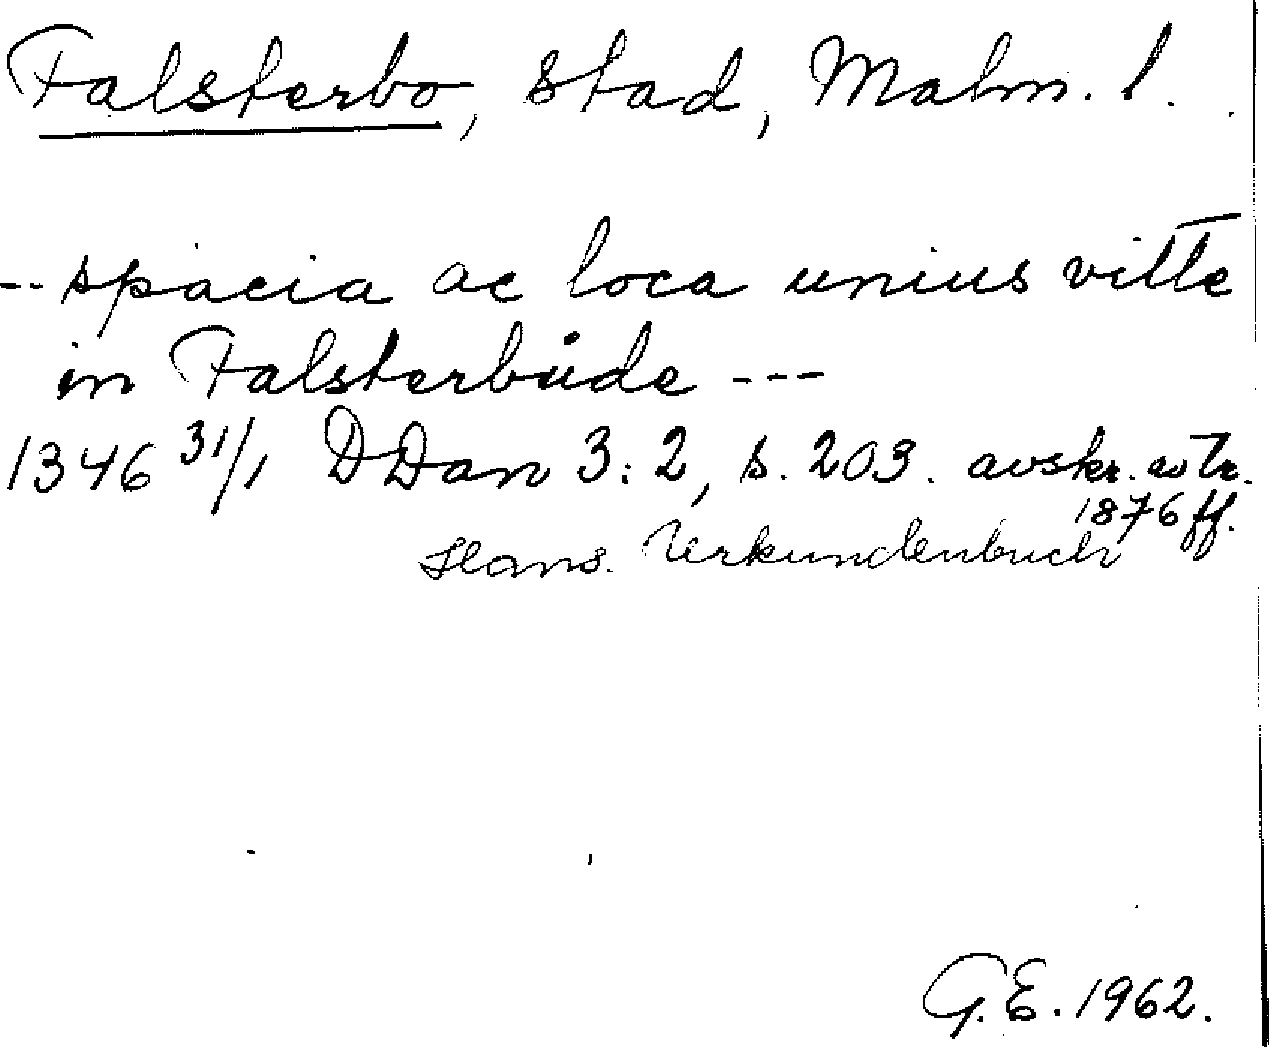 Falsterbo, stad, Malm. l.
-- spacia ac loca unius vitte
in Falsterbude ---
1346 31/1 DDan 3:2, s. 203. avskr. av tr.
1876 ff.
Hans. Urkundenbuch
G.E. 1962.